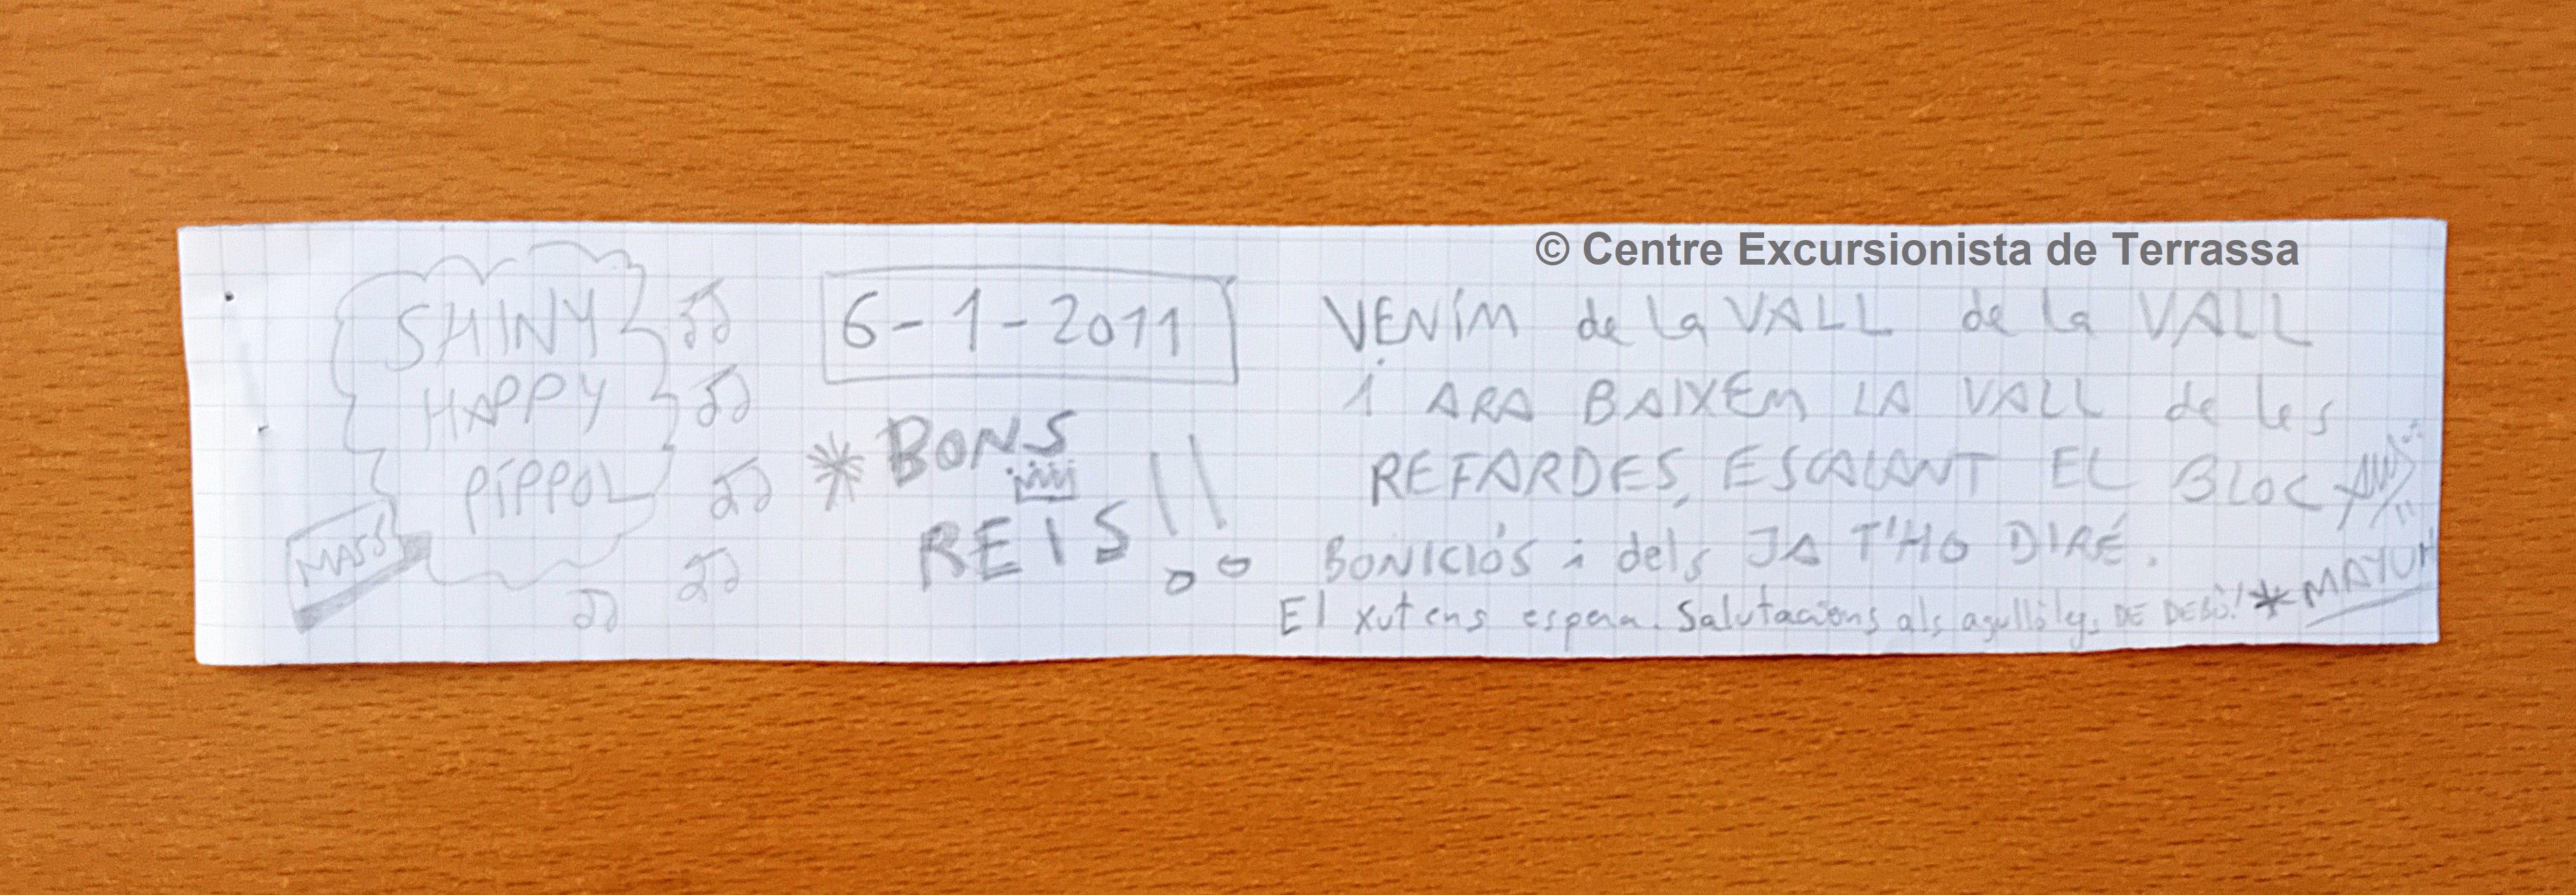 © Centre Excursionista de Terrassa
SHINY
HAPPY
PÍPPOL
MASS
6-1-2011
* BONS
REIS!!
VENÍM de la VALL de la VALL
i ARA BAIXEM LA VALL de les
REFARDES, ESCALANT EL BLOC
BONICIÓS i dels JA T'HO DIRÉ.
El xut ens espera. Salutacions als DE DEBÒ! * MAYUH